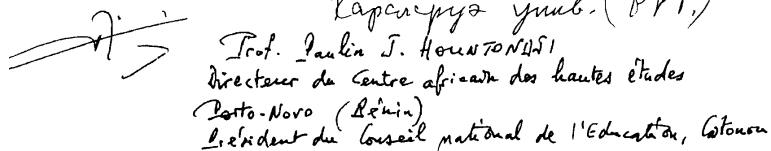 Prof. Paulin J. HOUNTONDJI
Directeur du Centre africain des hautes études
Porto-Novo (Bénin)
Président du Conseil national de l'Education, Cotonou